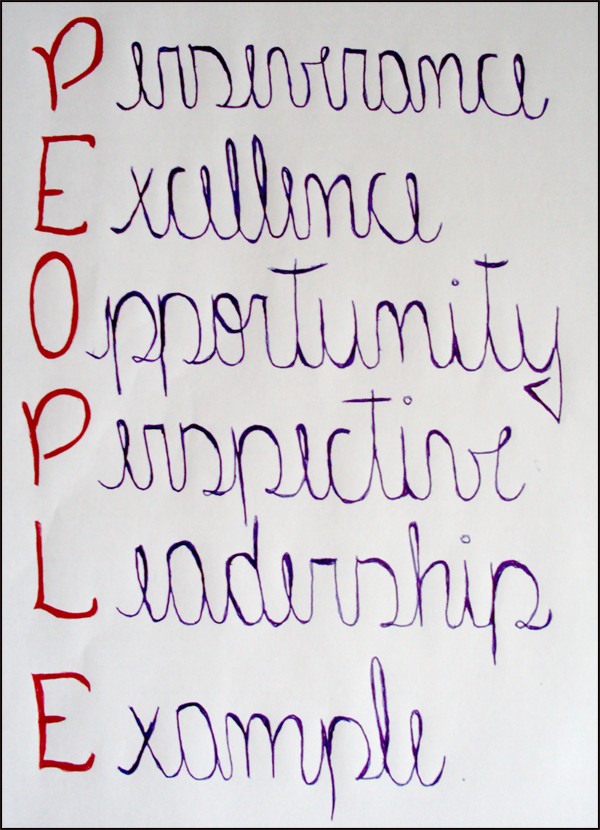 Perseverance
Excellence
Opportunity
Perspective
Leadership
Example